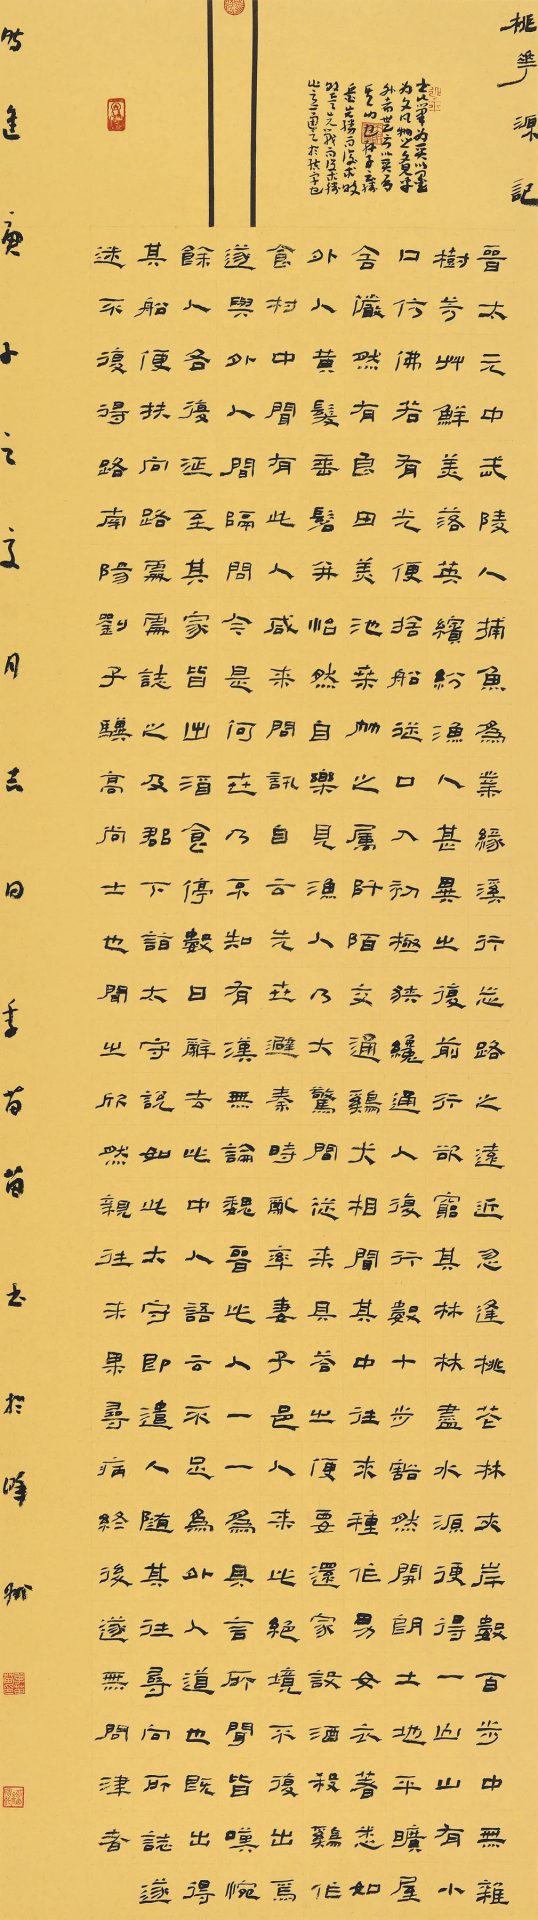 桃華源記
晋太元中武陵人捕魚為業緣溪行忘路之遠近忽逢桃花林夾岸數百步中無雜
樹芳艸鮮美落英繽紛漁人甚異之復前行欲窮其林林盡水源便得一山山有小
口仿佛若有光便捨船從口入初極狹纔通人復行數十步豁然開朗土地平曠屋
舍儼然有良田美池桑竹之属阡陌交通鷄犬相聞其中往來種作男女衣著悉如
外人黄髮垂髫并怡然自樂見漁人乃大驚問從来具答之便要還家設酒殺鷄作
食村中聞有此人咸来問訊自云先世避秦時亂率妻子邑人来此絕境不復出焉
遂與外人間隔問今是何世乃不知有漢無論魏晋此人一一為具言所聞皆嘆惋
餘人各復延至其家皆出酒食停數日辭去此中人語云不足為外人道也既出得
其船便扶向路處處誌之及郡下詣太守說如此太守即遣人随其往尋向所誌遂
迷不復得路南陽劉子驥高尚士也聞之欣然親往未果尋病終後遂無問津者
庚子之夏月吉日李苗苗书於